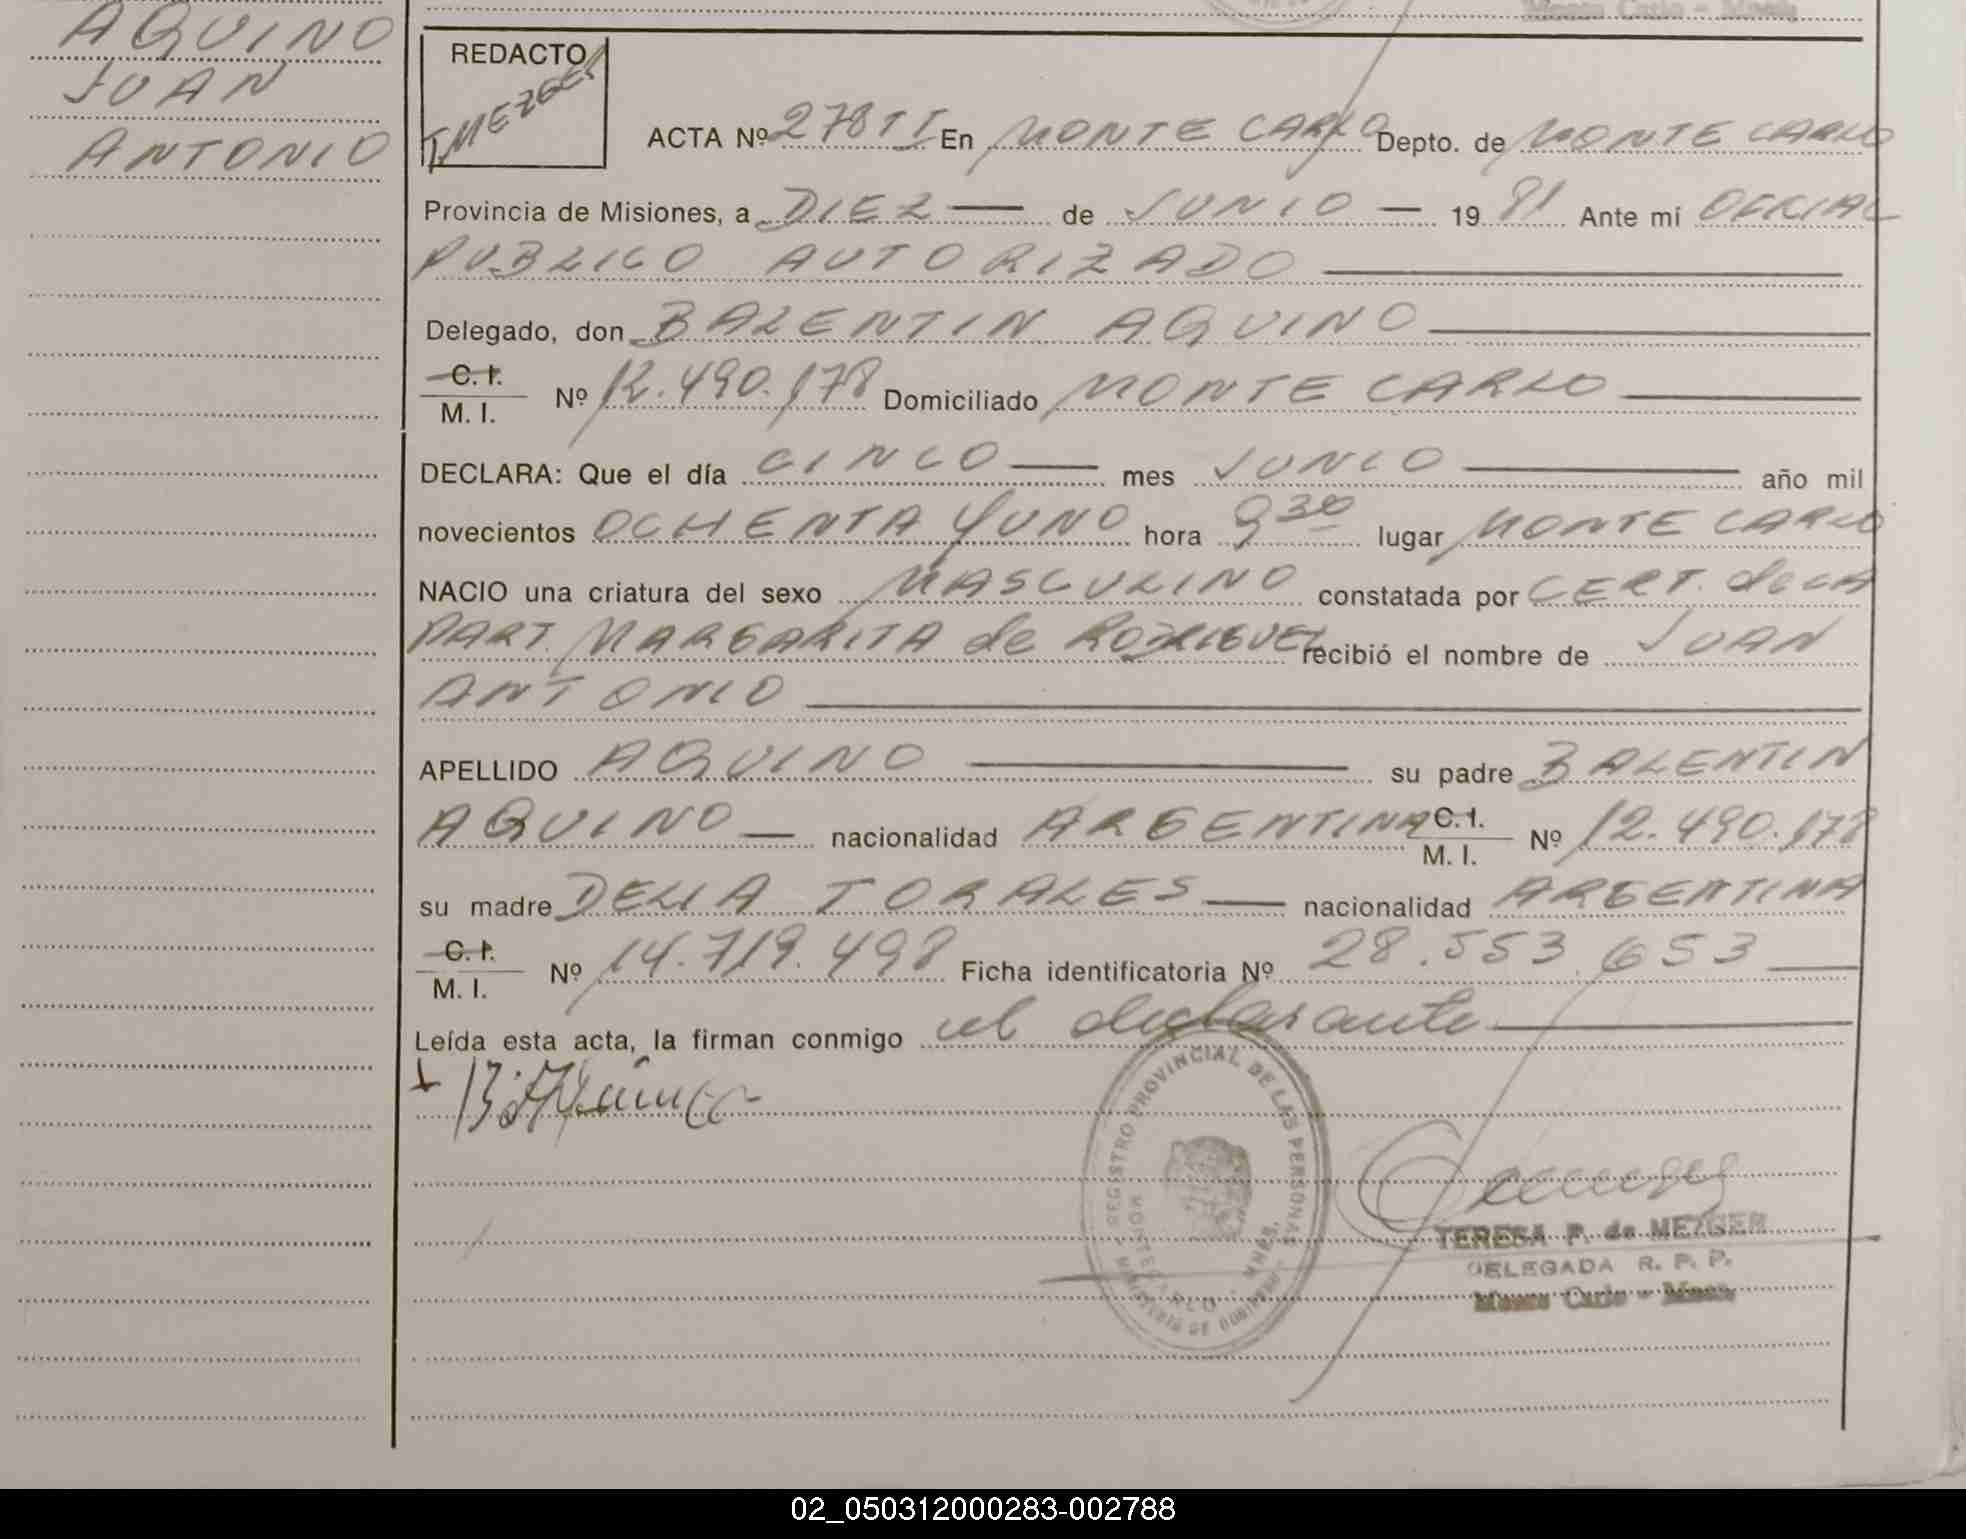 AQUINO
JUAN
ANTONIO
REDACTO
TMEZGER
ACTA Nº 278 TI En MONTE CARLO Depto. de MONTE CARLO
Provincia de Misiones, a DIEZ — de JUNIO — 19 81 Ante mi OFICIAL
PUBLICO AUTORIZADO
Delegado, don BALENTIN AQUINO
C. I.
M. I. Nº 12.490.178 Domiciliado MONTE CARLO
DECLARA: Que el día CINCO — mes JUNIO — año mil
novecientos OCHENTA Y UNO hora 9 30 lugar MONTE CARLO
NACIO una criatura del sexo MASCULINO constatada por CERT. de LA
PART. MARGARITA de RODRIGUEZ recibió el nombre de JUAN
ANTONIO
APELLIDO AQUINO — su padre BALENTIN
AQUINO — nacionalidad ARGENTINA C. I. M. I. Nº 12.490.178
su madre DELIA TORALES — nacionalidad ARGENTINA
C. I.
M. I. Nº 14.719.498 Ficha identificatoria Nº 28.553.653 —
Leída esta acta, la firman conmigo el declarante
REGISTRO PROVINCIAL DE LAS PERSONAS
MONTECARLO - MNES.
MINISTERIO DE GOBIERNO
TERESA P. de MEZGER
DELEGADA R. P. P.
Monte Carlo - Mnes.
02_050312000283-002788